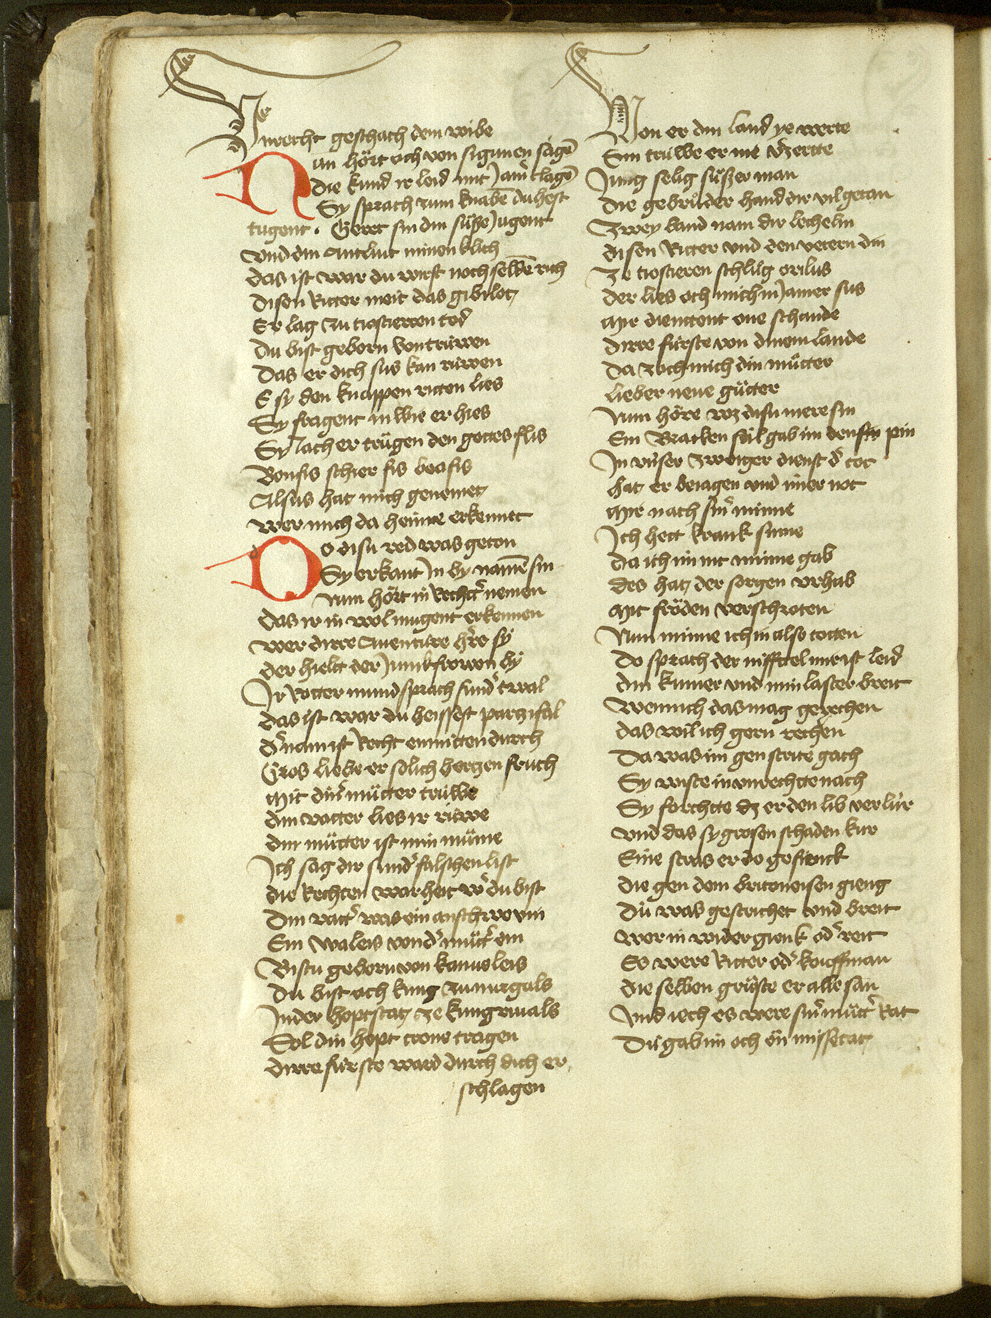 Unrecht geschach dem wibe
Nun hört och von sigunen sagē
die kund ir leid mit Jam̄ clagē
Sy sprach zum knabē du hest
tugent · Geret sin din süsze Jugent
vnd din Antlut minenklich
das ist war du wirst noch seldē rich
disen Ritter meit das gibilot
Er lag zu tiostieren tod
du bist geborn von trüwen
das er dich sus kan rüwen
E sy den knappen ritten lies
Sy fragent in wie er hies
Sy Jach er trügen den gottes flis
Bonfis schier fis beafis
Alsus hat mich genemet
wer mich da heime erkennet
Do disu red was geton
Sy erkant in by namē sin
Nun hört in Rechtʼ nemen
das ir in wol mugent erkennen
wer dirre Auenture hʼre sy
der hielt der Junkfrowen by
Ir Rotter mund sprach sundʼ twal
das ist war du heissest parzifal
dʼ nam ist Recht enmitten durch
Gros liebe er solich hergen fruch
Mit dinʼ mütter trüwe
din vatter lies ir rüwe
din mütter ist min müme
Ich sag dir sundʼ falschen list
die Rechten warheit wʼ du bist
Din vattʼ was ein anschowin
Ein waleis von dʼ mütʼ ein
Bistu geborn von kanuoleis
Du bist och kung zu nurgals
In der hoptstat ze kungriuals
Sol din hopt crone tragen
dirre fürste ward durch dich er
schlagen
Won er din land ye werte
Sin trüwe er nie vʼzerte
Jung selig süszer man
die gebrüder hand dir vil getan
Zwey land nam dir lechelin
disen Ritter vnd den vetern din
Ze tiostieren schlug orilus
der lies och mich in Jamer sus
Mir dienttent one schande
dirre fürste von dinem lande
Da zoch mich din mütter
lieber neue gütter
Nun höre wz disu mere sin
Ein Bracken sail gab im den pin
In vnser zweiger dienst dʼ tot
hat er beiagen vnd imer not
Mir nach sinʼ minne
Ich hett krank sinne
da ich im nit minne gab
des hat der sorgen vrhab
Mit fröden verschroten
Nun minne ich in also totten
Do sprach der nifftel mir ist leid
din kumer vnd min laster breit
Wenn ich das mag gerechen
das wil ich gern rechen
Da was im gen strite gach
Sy wiste in vnrechte nach
Sy forchtte dz er den lib verlür
vnd das sy grosen schaden kur
Eine stras er do gefienck
die gen dem britoneisen gieng
Dü was gestrichet vnd breit
wer in wider gienk odʼ reit
Es were Ritter odʼ kouffman
die selben grüste er alle san
Vnd iech es were sinʼ mütʼ Rat
Dü gab im och ön missetat